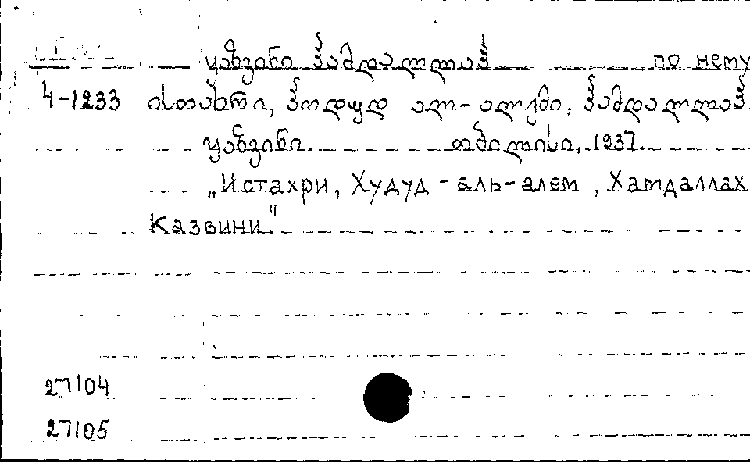 ყაზვინი ჰამდალლაჰ по нему
4-1233 ისთახრი, ჰოდუდ ალ-ალემი, ჰამდალლაჰ
ყაზვინი. თბილისი, 1937.
„Истахри, Худуд-аль-алем, Хамдаллах
Казвини"
27104
27105